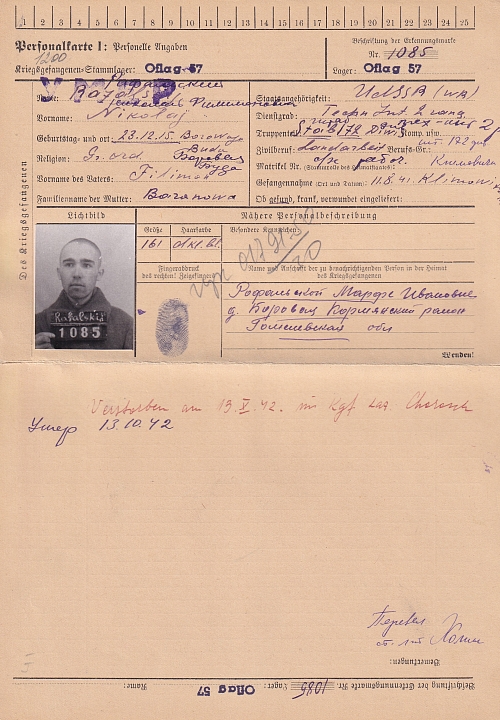 1 2 3 4 5 6 7 8 9 10 11 12 13 14 15 16 17 18 19 20 21 22 23 24 25
Personalkarte I: Personelle Angaben
Beschriftung der Erkennungsmarke
1200
Nr. 1085
Kriegsgefangenen-Stammlager: Oflag 57
Lager: Oflag 57
Des Kriegsgefangenen
Name:
Staatsangehörigkeit: UdSSR
Филимонович
Vorname: Nikolaj
Dienstgrad:
Truppenteil: Stab 172 Div. Komp. usw.
Geburtstag und -ort: 23.12.15.
Zivilberuf: Landarbeit. Berufs-Gr.:
Religion: Gr. ord
Matrikel Nr. (Stammrolle des Heimatstaates):
Vorname des Vaters: Filimon
Gefangennahme (Ort und Datum): 11.8.41.
Familienname der Mutter: Baranowa
Ob gesund, krank, verwundet eingeliefert:
Lichtbild
Nähere Personalbeschreibung
Größe
Haarfarbe
Besondere Kennzeichen:
161
dkl. bl.
Fingerabdruck
des rechten! Zeigefingers
Name und Anschrift der zu benachrichtigenden Person in der Heimat
des Kriegsgefangenen
Рафальской Марфе Ивановне
д. Боровая Кормянский район
Гомельская обл
Rafalskij
1085
Wenden!
Verstorben am 13.X.42. im Kgf. Laz. Chorosch
Умер 13.10.42
Перевел
Bemerkungen:
Beschriftung der Erkennungsmarke Nr. 1085
Lager: Oflag 57
Name: